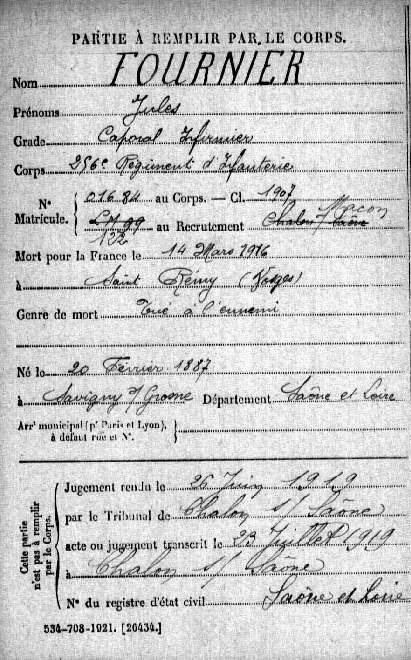 PARTIE À REMPLIR PAR LE CORPS.
Nom FOURNIER
Prénoms Jules
Grade Caporal Infirmier
Corps 256e Régiment d'Infanterie
N° Matricule. { 01684 au Corps. — Cl. 1907
Mâcon
122 au Recrutement Chalon s/ Saône
Mort pour la France le 14 Mars 1916
à Saint Rémy (Vosges)
Genre de mort Tué à l'ennemi
Né le 20 Février 1887
à Savigny s/ Grosne Département Saône et Loire
Arrt municipal (pr Paris et Lyon), à défaut rue et N°. }
Cette partie n'est pas à remplir par le Corps.
Jugement rendu le 26 Juin 1919
par le Tribunal de Chalon s/ Saône
acte ou jugement transcrit le 23 Juillet 1919
à Chalon s/ Saône
N° du registre d'état civil Saône et Loire
534-708-1921. [26434.]